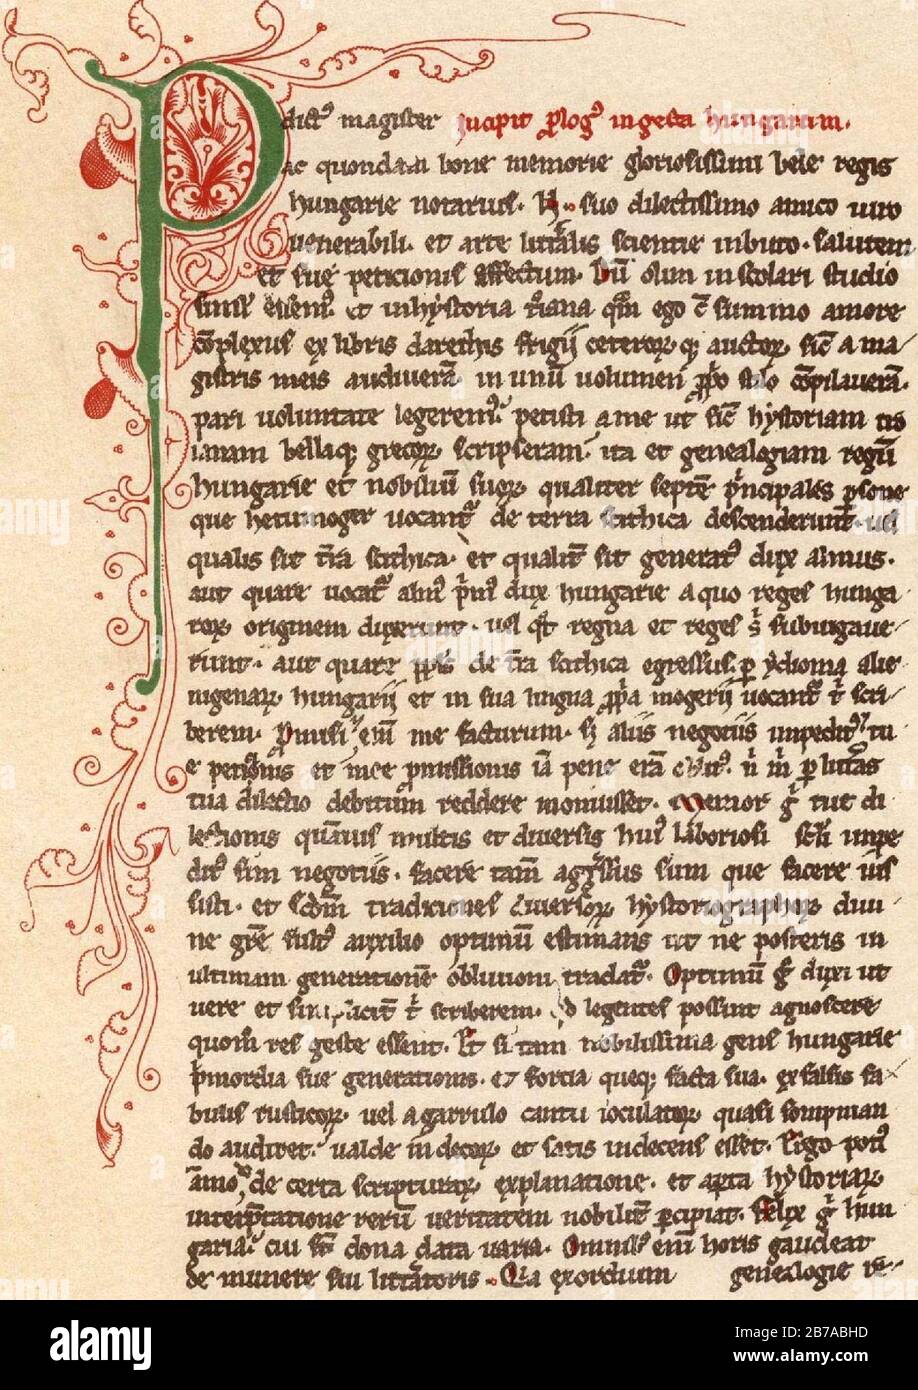 P dict᷒ magister Incipit ꝓlog᷒ in gesta hungarum.
ac quondam bone memorie gloriosissimi bele regis
hungarie notarius. N. suo dilectissimo amico uiro
uenerabili. et arte litt̃alis scientie inbuto. salutem
et sue peticionis effectum. Dũ olim in scolari studio
simul̃ essem᷒. et in hystoria t̃iana qm̃ ego cũ summo amore
cõplexus ex libris darethis frigii ceterorꝝ qꝫ auctorꝝ. sic̃ a ma
gistris meis audiuerã. in unũ uolumen ꝓp̃o stilo cõpilauerã.
pari uoluntate legerem᷒. petisti a me ut sic̃ hystoriam tro
ianam bellaqꝫ grecorꝝ scripseram. ita et genealogiam regũ
hungarie et nobiliũ suorꝝ. qualiter septẽ p̃ncipales ꝑsone
que hetumoger uocant᷑ de terra scithica descenderunt. uel
qualis sit t̃ra scithica. et qualit̃ sit generat᷒ dux almus.
aut quare uocat᷑ alm᷒ p̃m᷒ dux hungarie a quo reges hunga
rorꝝ originem duxerunt. uel qt̃ regna et reges s̃ subiugaue
runt. aut quare ppl̃s de t̃ra scithica egressus. ꝑ ydioma alie
nigenarꝝ hungarii et in sua lingua ꝓp̃a mogerii uocant᷑ t̃ scri
berem. Promisi et̃m me facturum. sꝫ aliis negotiis impedit᷒. tu
e peticionis et mee ꝓmissionis iã pene erã oblit᷒. ñ m̃ ꝑ litt̃as
tua dilectio debitum reddere monuisset. Memor g̃ tue di
lectionis quãuis multis et diuersis hui᷒ laboriosi scl̃i impe
dit᷒ sim negotiis. facere tam̃ agg̃ssus sum que facere ius
sisti. et scd̃m traditiones diuersorꝝ hystoriographorꝝ diui
ne grẽ fult᷒ auxilio optimũ estimans ut ne posteris in
ultimam generationẽ obliuioni tradat᷑. Optimũ g̃ duxi ut
uere et simpliciter t̃ scriberem. qd̃ legentes possint agnoscere
quom̃ res geste essent. Et si tam nobilissima gens hungarie
p̃mordia sue generationis. et fortia queqꝫ facta sua. ex falsis fa
bulis rusticorꝝ. uel a garrulo cantu ioculatorꝝ quasi sompnian
do audiret. ualde indecorꝝ et satis indecens esset. Ergo poti᷒
ãmo de certa scripturarꝝ explanatione. et aꝑta hystoriarꝝ
interp̃tatione rerũ ueritatem nobilit̃ ꝑcipiat. Felix g̃ hun
garia. cui sũt dona data uaria. Omnib᷒ em̃ horis gaudeat
de munere sui litt̃atoris. Qia exordium genealogie re-
alamy
Image ID: 2B7ABHD
www.alamy.com